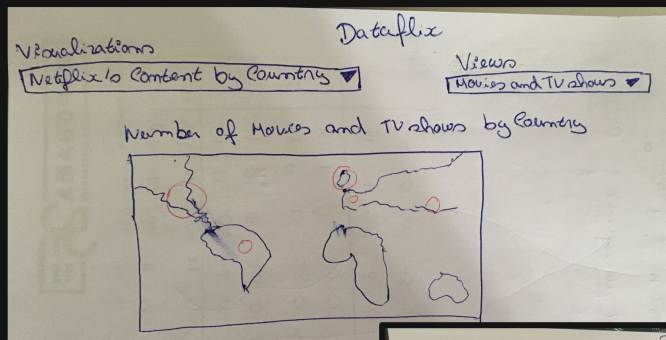 Dataflix
Visualizations
Netflix's Content by Country
Views
Movies and TV shows
Number of Movies and TV shows by Country